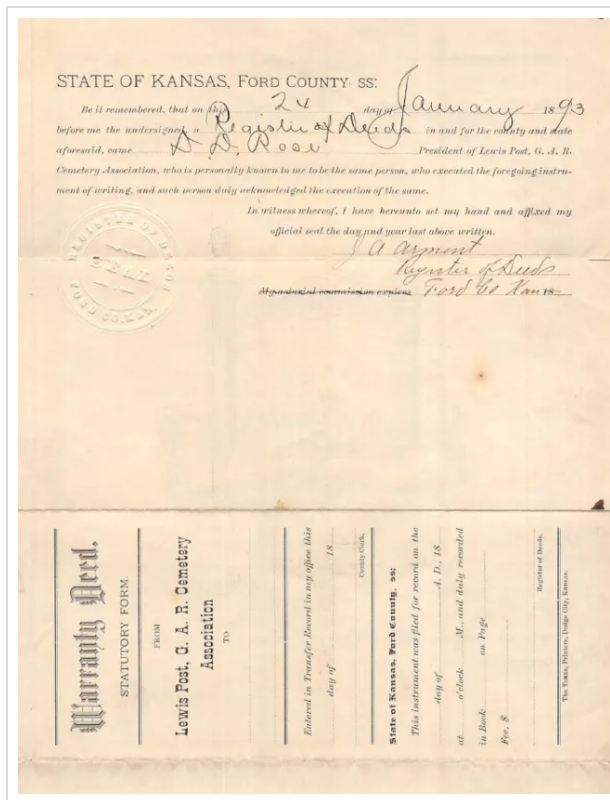 STATE OF KANSAS, FORD COUNTY, SS:
Be it remembered, that on this 24 day of January 1893
before me the undersigned, a Register of Deeds in and for the county and state
aforesaid, came D. D. Rose President of Lewis Post, G. A. R.
Cemetery Association, who is personally known to me to be the same person, who executed the foregoing instru-
ment of writing, and such person duly acknowledged the execution of the same.
In witness whereof, I have hereunto set my hand and affixed my
official seal the day and year last above written.
J A Arment
Register of Deeds
My notarial commission expires Ford Co Kan 18
REGISTER OF DEEDS
SEAL
FORD CO. KAN.
Warranty Deed.
STATUTORY FORM.
FROM
Lewis Post, G. A. R. Cemetery
Association
TO
Entered in Transfer Record in my office this
day of 18
County Clerk.
State of Kansas, Ford County, ss:
This instrument was filed for record on the
day of A. D., 18
at o'clock M., and duly recorded
in Book on Page
Fee, $
Register of Deeds.
The Times, Printers, Dodge City, Kansas.